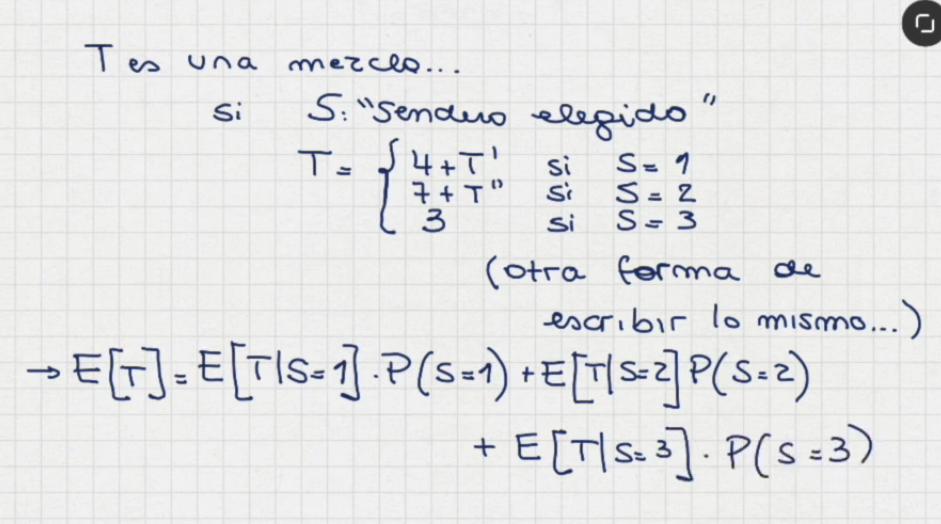 T es una mezcla...
si S: "Sendero elegido"
T = { 4 + T' si S = 1
7 + T'' si S = 2
3 si S = 3
(otra forma de
escribir lo mismo...)
→ E[T] = E[T|S=1] . P(S=1) + E[T|S=2] P(S=2)
+ E[T|S=3] . P(S=3)